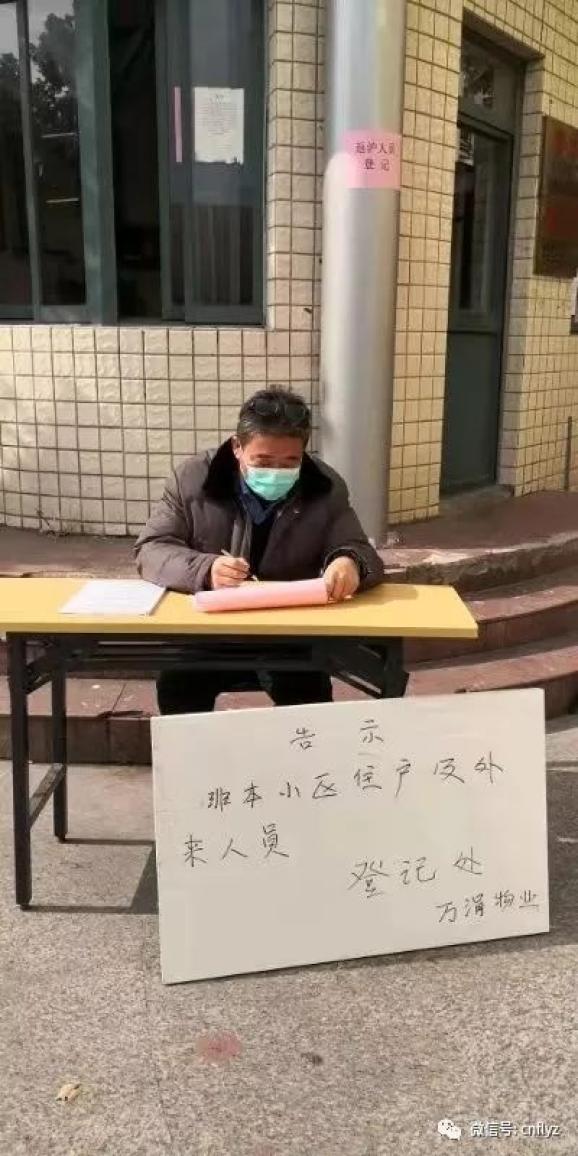 返沪人员
登记
告示
非本小区住户及外
来人员
登记处
万涓物业
微信号: cnflyz